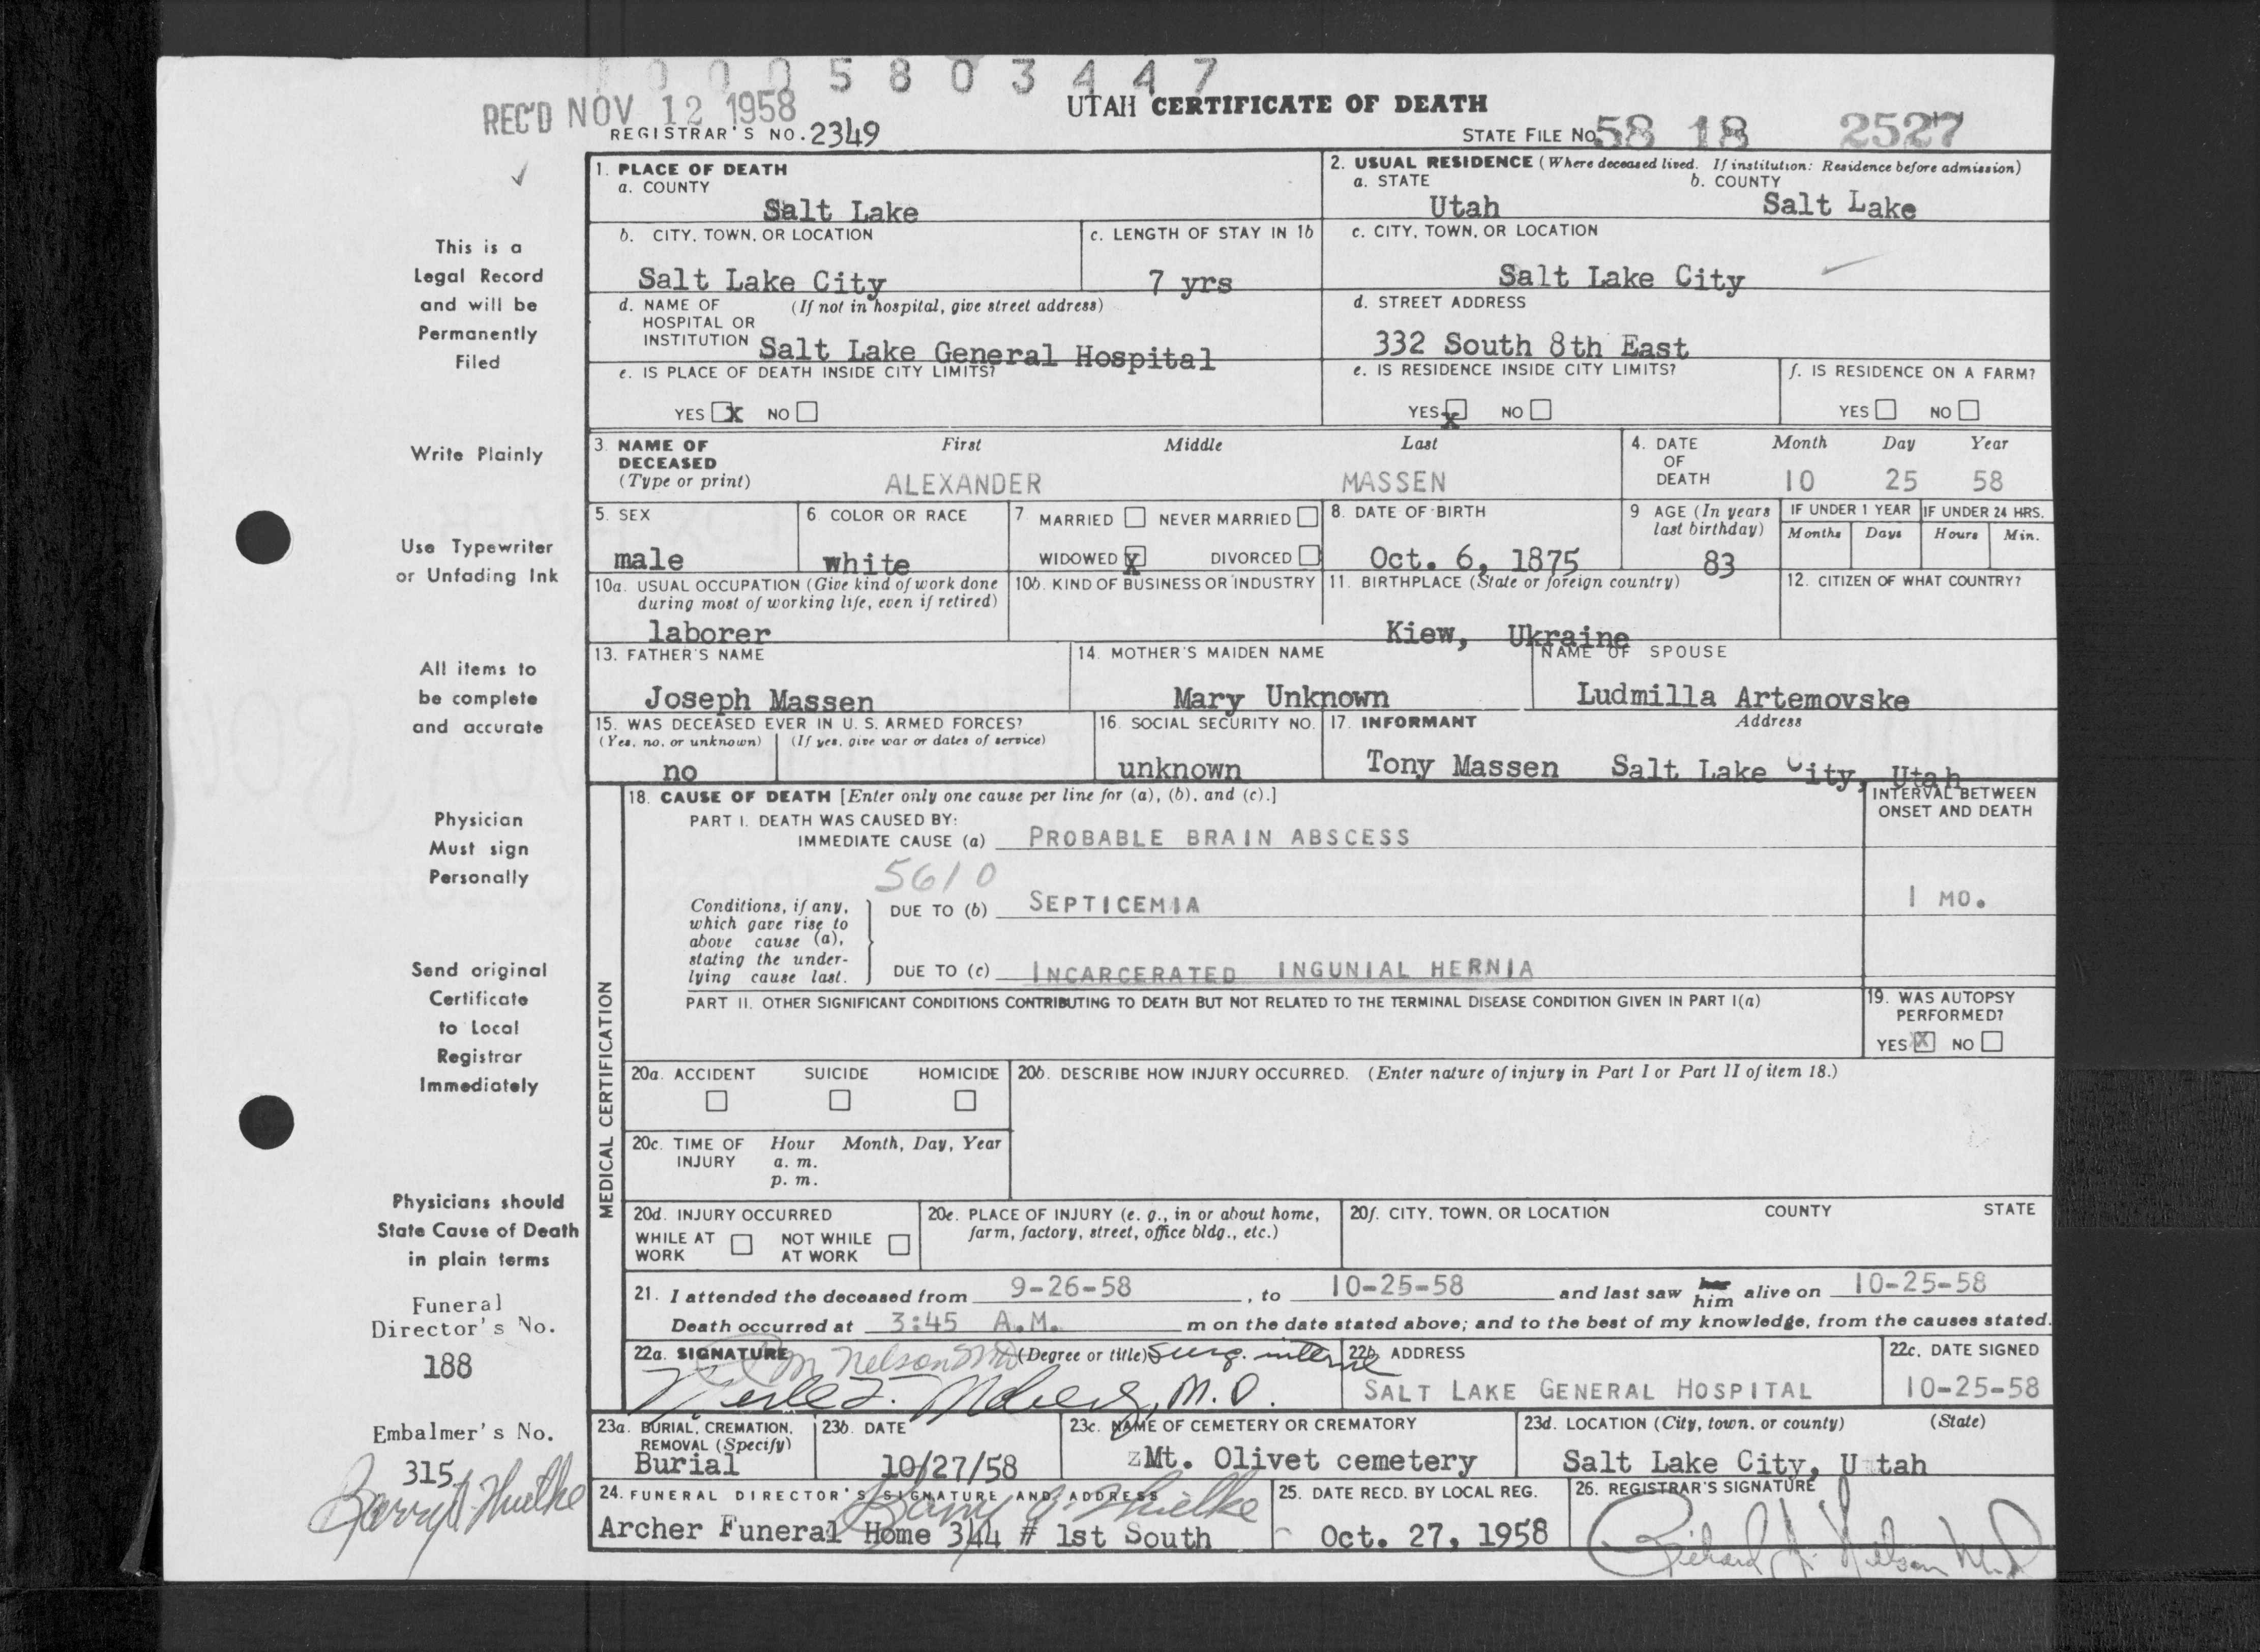 0005803447
REC'D NOV 12 1958
UTAH CERTIFICATE OF DEATH
REGISTRAR'S NO. 2349
STATE FILE NO. 58 18 2527
This is a
Legal Record
and will be
Permanently
Filed
Write Plainly
Use Typewriter
or Unfading Ink
All items to
be complete
and accurate
Physician
Must sign
Personally
Send original
Certificate
to Local
Registrar
Immediately
Physicians should
State Cause of Death
in plain terms
Funeral
Director's No.
188
Embalmer's No.
315
1. PLACE OF DEATH
a. COUNTY
Salt Lake
2. USUAL RESIDENCE (Where deceased lived. If institution: Residence before admission)
a. STATE b. COUNTY
Utah Salt Lake
b. CITY, TOWN, OR LOCATION
Salt Lake City
c. LENGTH OF STAY IN 1b
7 yrs
c. CITY, TOWN, OR LOCATION
Salt Lake City
d. NAME OF (If not in hospital, give street address)
HOSPITAL OR
INSTITUTION Salt Lake General Hospital
d. STREET ADDRESS
332 South 8th East
e. IS PLACE OF DEATH INSIDE CITY LIMITS?
YES X NO
e. IS RESIDENCE INSIDE CITY LIMITS?
YES X NO
f. IS RESIDENCE ON A FARM?
YES NO
3. NAME OF First Middle Last
DECEASED
(Type or print) ALEXANDER MASSEN
4. DATE Month Day Year
OF
DEATH 10 25 58
5. SEX
male
6 COLOR OR RACE
white
7 MARRIED NEVER MARRIED
WIDOWED X DIVORCED
8. DATE OF BIRTH
Oct. 6, 1875
9 AGE (In years
last birthday)
83
IF UNDER 1 YEAR IF UNDER 24 HRS.
Months Days Hours Min.
10a. USUAL OCCUPATION (Give kind of work done
during most of working life, even if retired)
laborer
10b. KIND OF BUSINESS OR INDUSTRY
11. BIRTHPLACE (State or foreign country)
Kiew, Ukraine
12. CITIZEN OF WHAT COUNTRY?
13. FATHER'S NAME
Joseph Massen
14. MOTHER'S MAIDEN NAME
Mary Unknown
NAME OF SPOUSE
Ludmilla Artemovske
15. WAS DECEASED EVER IN U. S. ARMED FORCES?
(Yes, no, or unknown) (If yes, give war or dates of service)
no
16. SOCIAL SECURITY NO.
unknown
17. INFORMANT Address
Tony Massen Salt Lake City, Utah
MEDICAL CERTIFICATION
18. CAUSE OF DEATH [Enter only one cause per line for (a), (b), and (c).]
INTERVAL BETWEEN
ONSET AND DEATH
PART I. DEATH WAS CAUSED BY:
IMMEDIATE CAUSE (a) PROBABLE BRAIN ABSCESS
5610
Conditions, if any,
which gave rise to
above cause (a),
stating the under-
lying cause last.
DUE TO (b) SEPTICEMIA 1 MO.
DUE TO (c) INCARCERATED INGUNIAL HERNIA
PART II. OTHER SIGNIFICANT CONDITIONS CONTRIBUTING TO DEATH BUT NOT RELATED TO THE TERMINAL DISEASE CONDITION GIVEN IN PART I(a)
19. WAS AUTOPSY
PERFORMED?
YES X NO
20a. ACCIDENT SUICIDE HOMICIDE
20b. DESCRIBE HOW INJURY OCCURRED. (Enter nature of injury in Part I or Part II of item 18.)
20c. TIME OF Hour Month, Day, Year
INJURY a. m.
p. m.
20d. INJURY OCCURRED
WHILE AT NOT WHILE
WORK AT WORK
20e. PLACE OF INJURY (e. g., in or about home,
farm, factory, street, office bldg., etc.)
20f. CITY, TOWN, OR LOCATION COUNTY STATE
21. I attended the deceased from 9-26-58, to 10-25-58 and last saw her him alive on 10-25-58
Death occurred at 3:45 A.M. m on the date stated above; and to the best of my knowledge, from the causes stated.
22a. SIGNATURE (Degree or title) Surg. intern
Nelson MD
M.D.
22b. ADDRESS
SALT LAKE GENERAL HOSPITAL
22c. DATE SIGNED
10-25-58
23a. BURIAL, CREMATION,
REMOVAL (Specify)
Burial
23b. DATE
10/27/58
23c. NAME OF CEMETERY OR CREMATORY
Mt. Olivet cemetery
23d. LOCATION (City, town, or county) (State)
Salt Lake City, U tah
24. FUNERAL DIRECTOR'S SIGNATURE AND ADDRESS
Archer Funeral Home 344 # 1st South
25. DATE RECD. BY LOCAL REG.
Oct. 27, 1958
26. REGISTRAR'S SIGNATURE
Richard Nelson M.D.